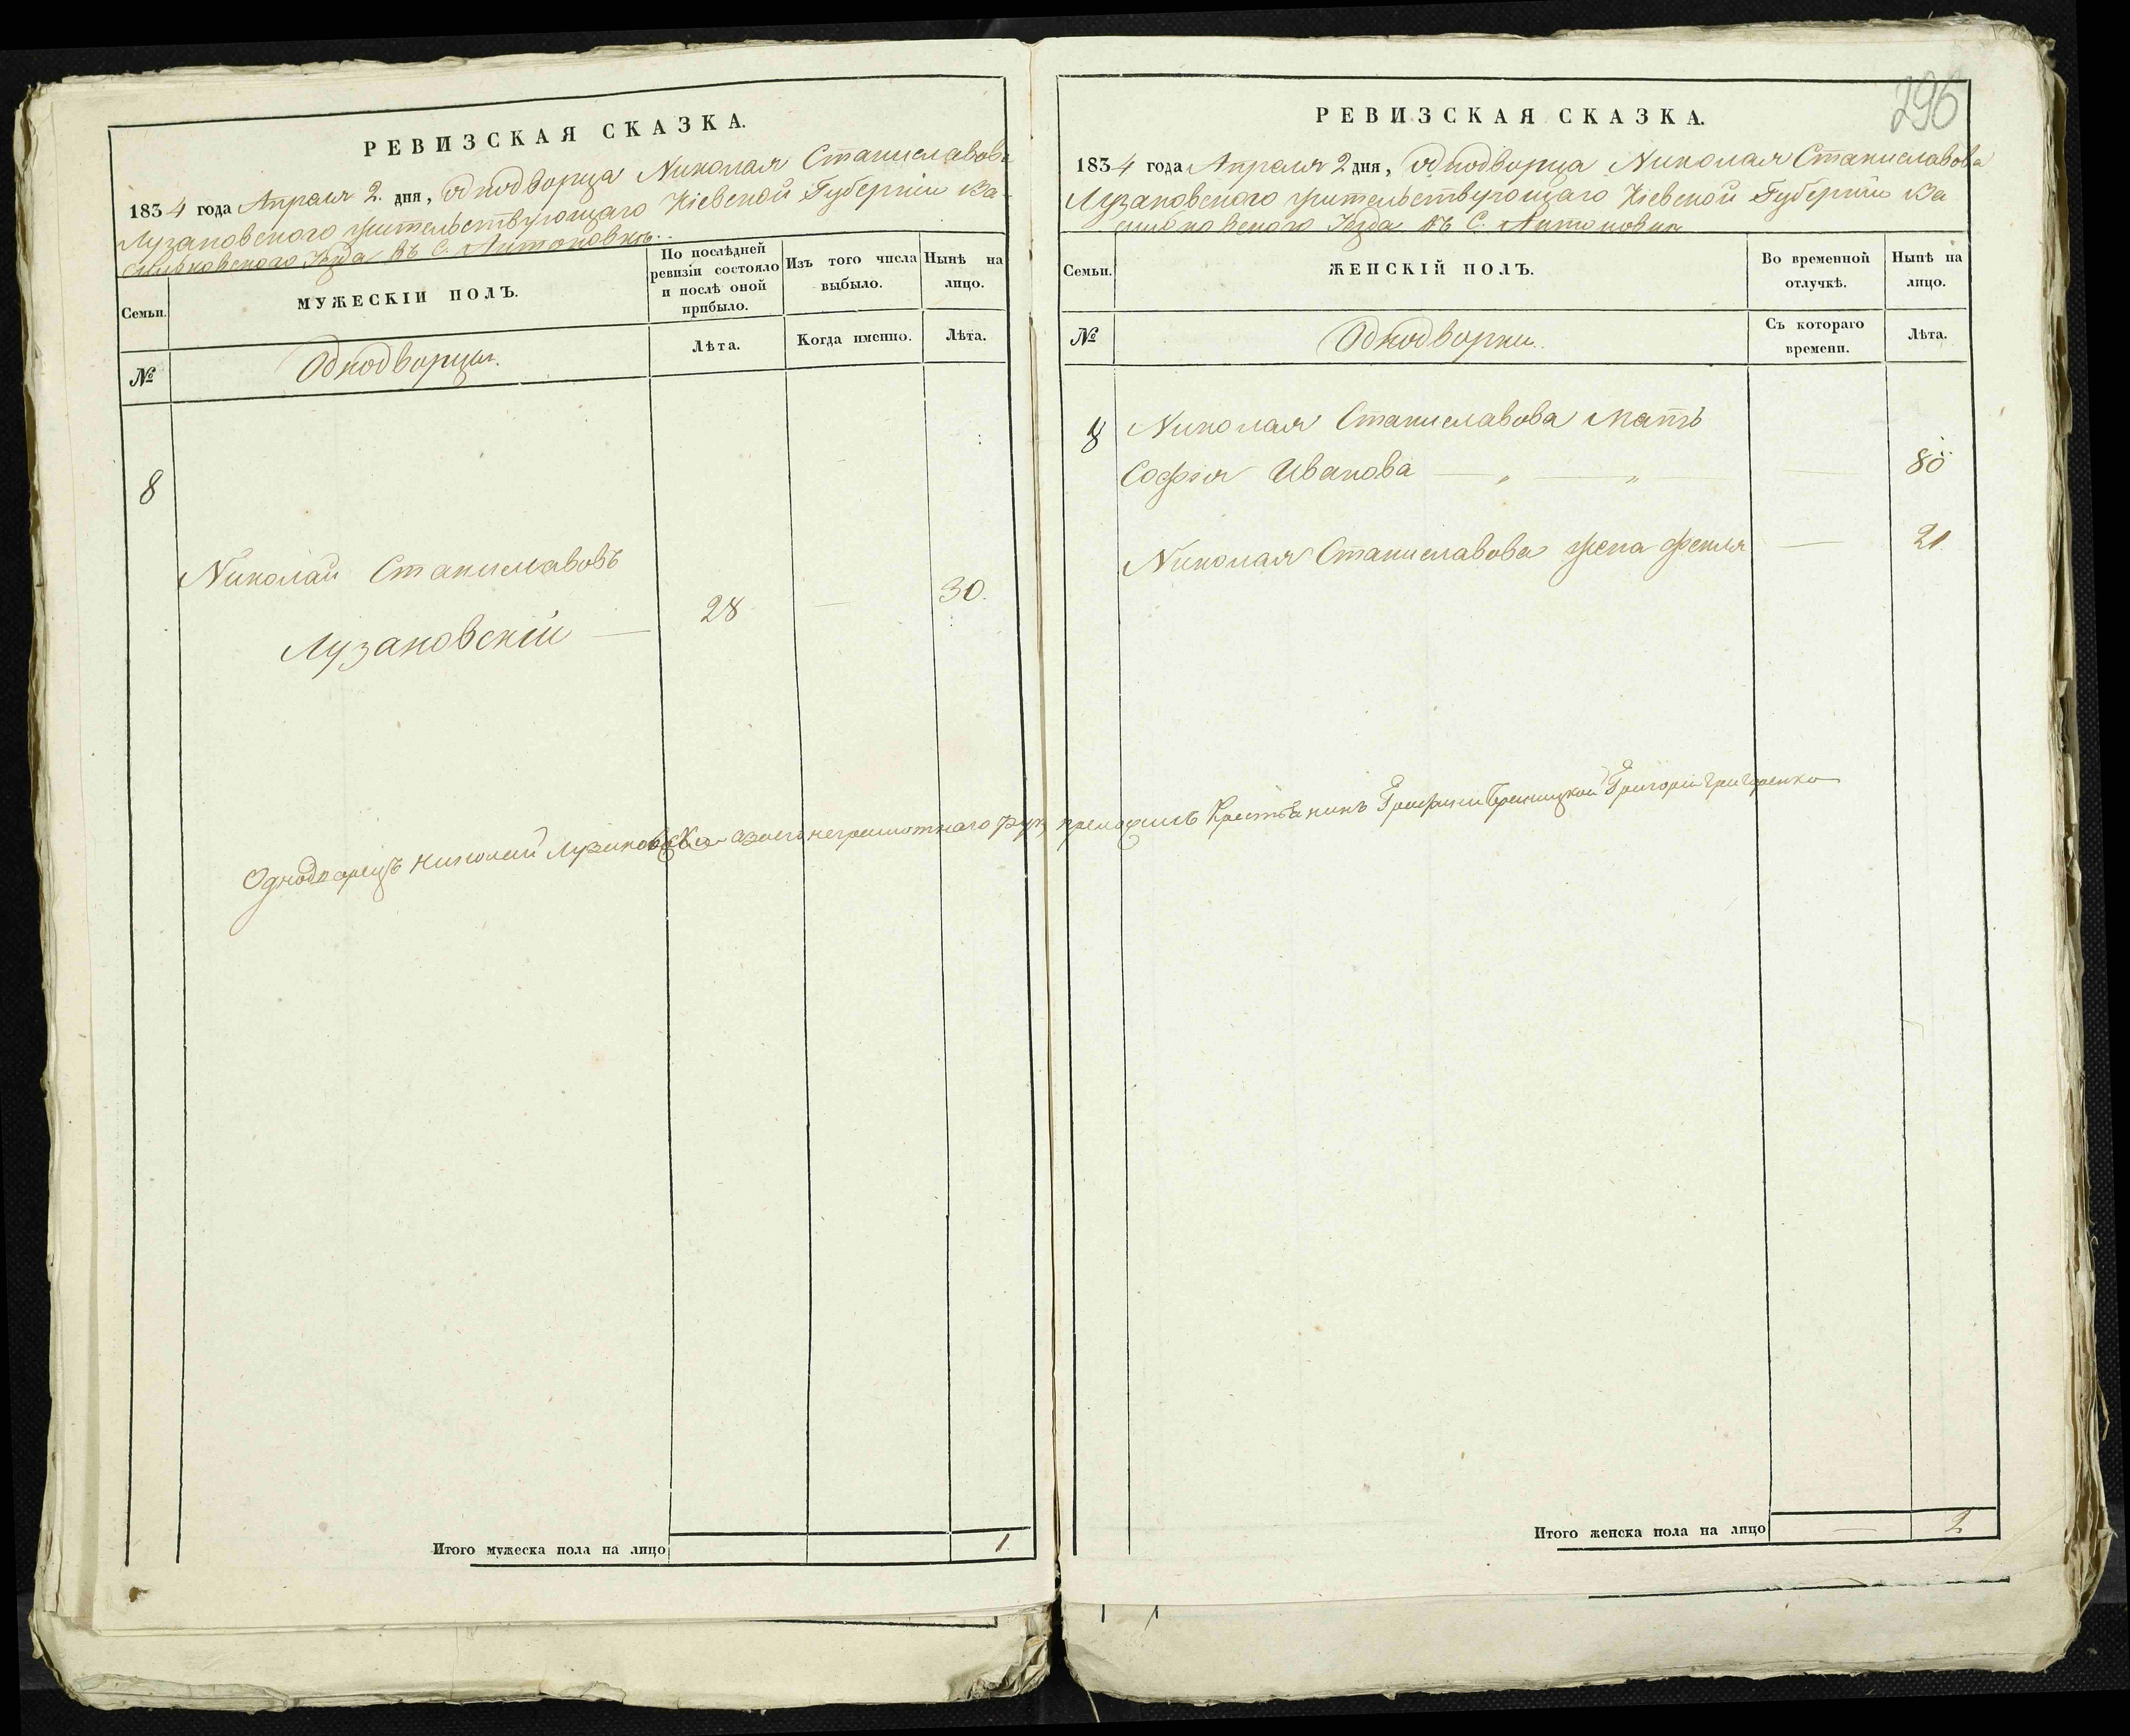 РЕВИЗСКАЯ СКАЗКА.
1834 года Апреля 2. дня, однодворца Николая Станиславова
Лузановского жительствующаго Кіевской Губерніи Ва-
сильковского Уезда въ С. Антоновкѣ.
Семьи.
МУЖЕСКІЙ ПОЛЪ.
По послѣдней
ревизіи состояло
и послѣ оной
прибыло.
Изъ того числа
выбыло.
Нынѣ на
лицо.
№
Однодворцы.
Лѣта.
Когда именно.
Лѣта.
8
Николай Станиславовъ
Лузановскій — 28 — 30.
Однодворецъ Николай Лузановскій
Итого мужеска пола на лицо 1.
296
РЕВИЗСКАЯ СКАЗКА.
1834 года Апреля 2 дня, однодворца Николая Станиславова
Лузановского жительствующаго Кіевской Губерніи Ва
сильковского Уезда въ С. Антоновки
Семьи.
ЖЕНСКІЙ ПОЛЪ.
Во временной
отлучкѣ.
Нынѣ на
лицо.
№
Однодворки.
Съ котораго
времени.
Лѣта.
8 Николая Станиславова мать
Софія Иванова — „ — „ — 80
Николая Станиславова жена Фекля — 21.
Крестьянинъ Графини Браницкой Григорій Григоренко
Итого женска пола на лицо — 2